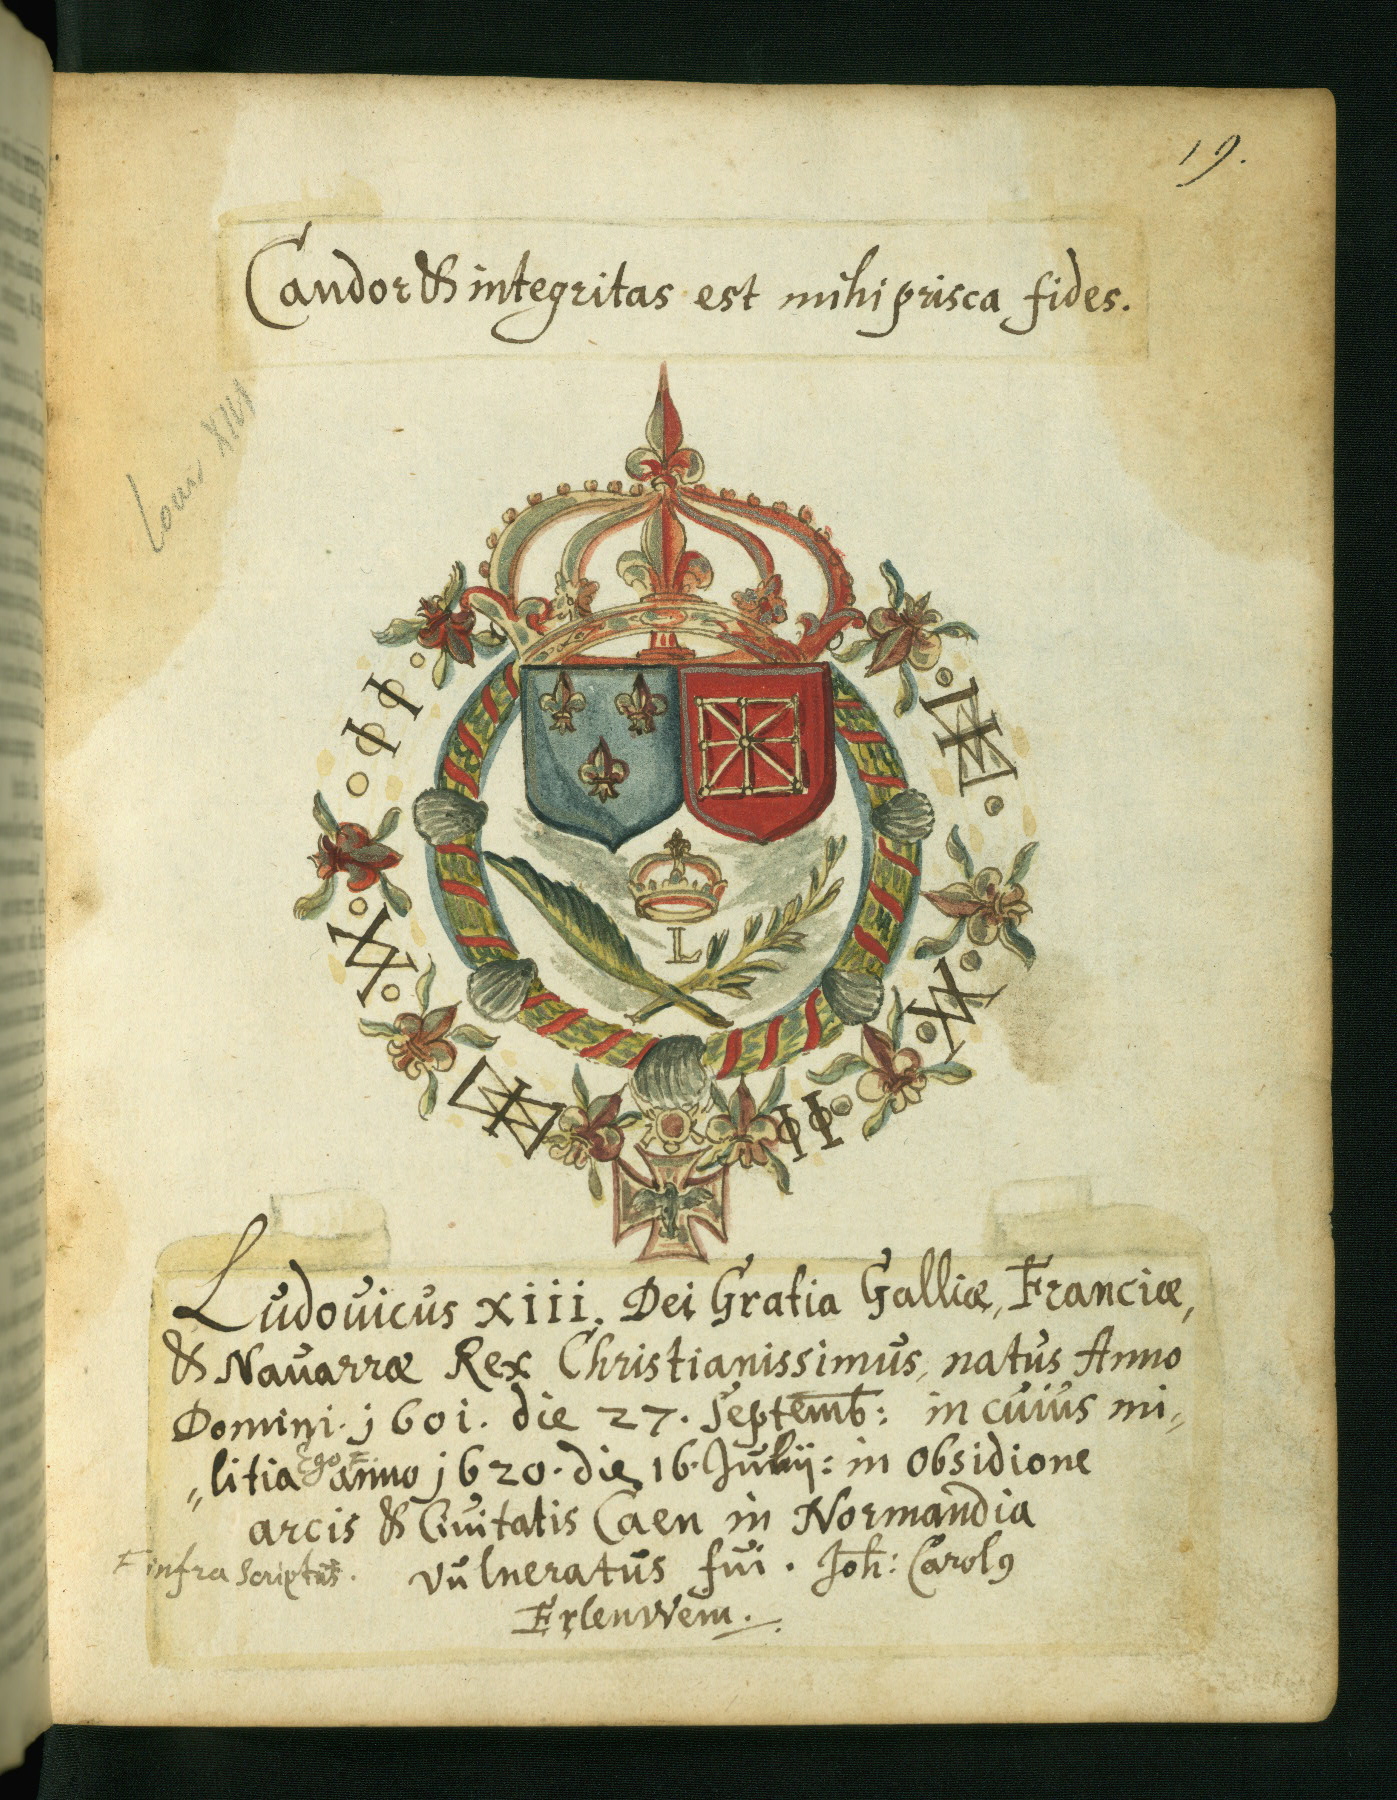 19.
Candor & integritas est mihi prisca fides.
Louis XIII
L
Ludouicus xiii. Dei Gratia Galliæ, Franciæ,
& Nauarræ Rex Christianissimus, natus Anno
Domini. j60i. die 27. Septemb: in cuius mi„
„litia ego F Anno j620. die 16. Julij: in obsidione
arcis & Ciuitatis Caen in Normandia
F infra scriptus. vulneratus fui. Joh: Carolꝯ
Erlenwein.